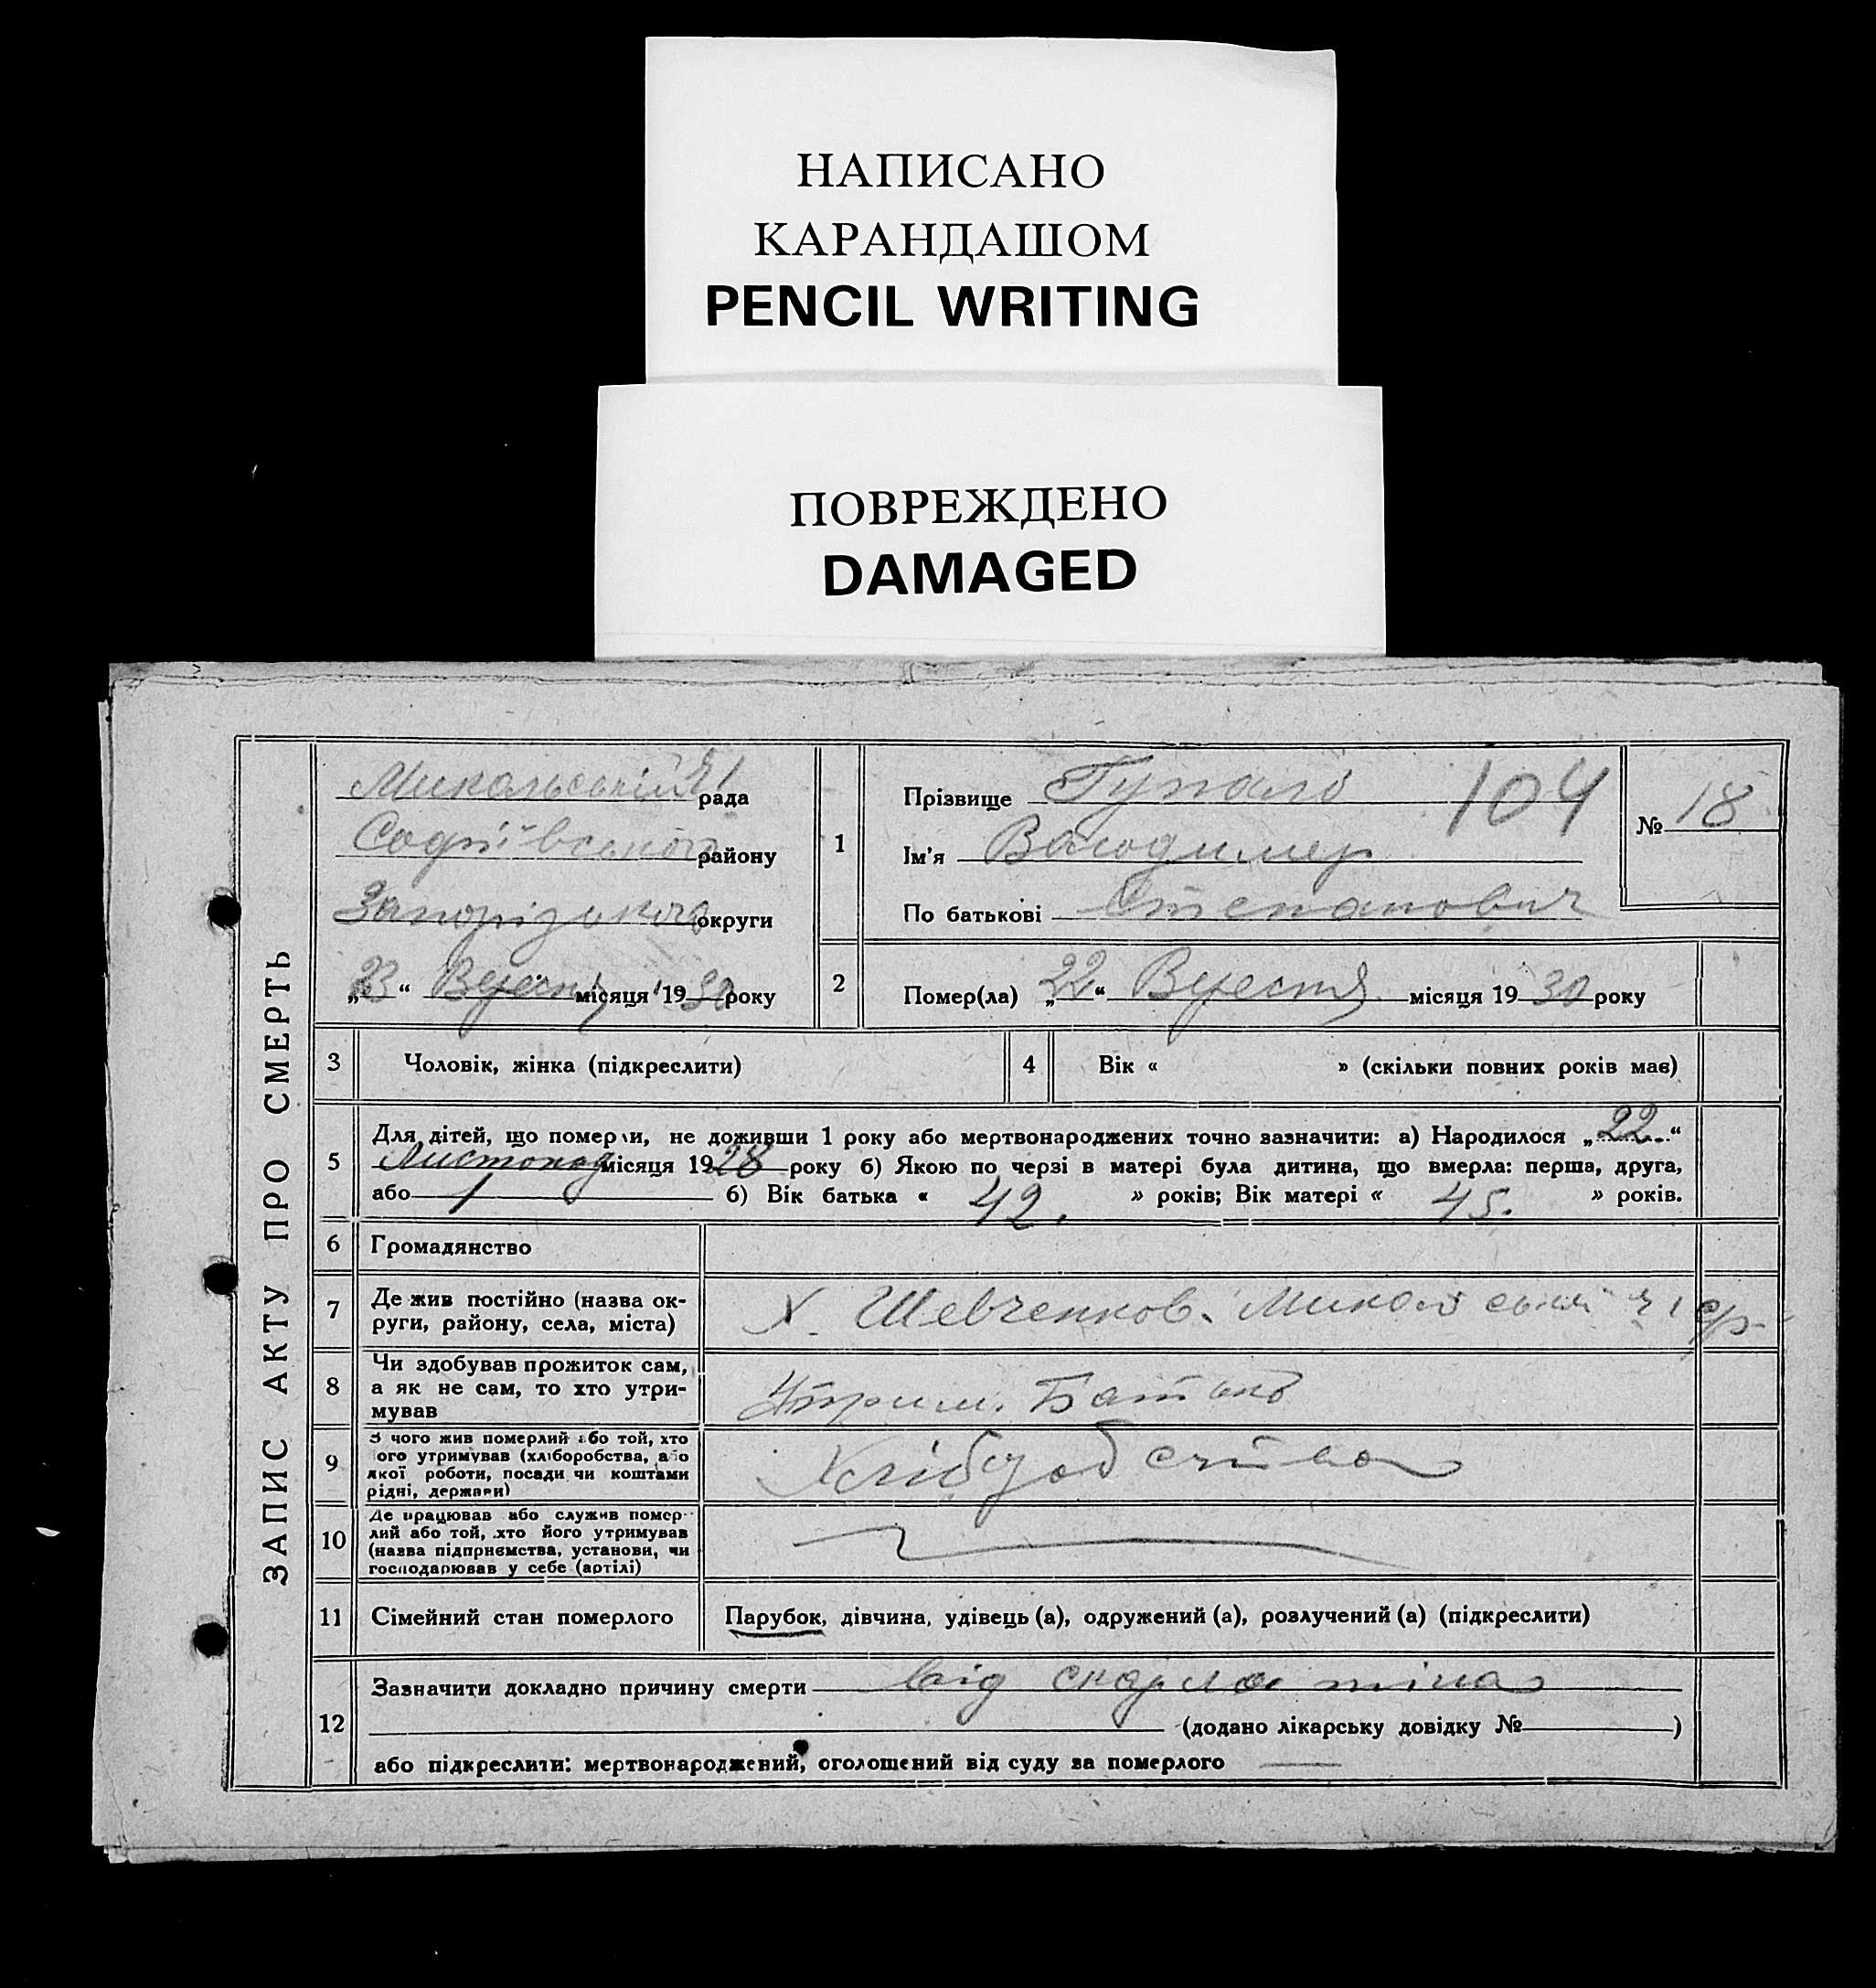 НАПИСАНО
КАРАНДАШОМ
PENCIL WRITING
ПОВРЕЖДЕНО
DAMAGED
ЗАПИС АКТУ ПРО СМЕРТЬ
Микольський №1 рада
Софіївського району
Запорізького округи
„23“ Вересня місяця 1930 року
1
Прізвище Гупало 104
Ім'я Володимер
По батькові Степанович
№ 18
2
Помер(ла) „22“ Вересня місяця 1930 року
3 Чоловік, жінка (підкреслити)
4 Вік « » (скільки повних років має)
5
Для дітей, що померли, не доживши 1 року або мертвонароджених точно зазначити: а) Народилося „22“
Листопад місяця 1928 року б) Якою по черзі в матері була дитина, що вмерла: перша, друга,
або 1 б) Вік батька « 42. » років; Вік матері « 45. » років.
6 Громадянство
7 Де жив постійно (назва ок-
руги, району, села, міста)
Х. Шевченков. Миколь с/р
8 Чи здобував прожиток сам,
а як не сам, то хто утри-
мував
Утрим. Батько
9 З чого жив померлий або той, хто
ого утримував (хліборобства, або
якої роботи, посади чи коштами
рідні, держави)
10 Де працював або служив помер-
лий або той, хто його утримував
(назва підприємства, установи, чи
господарював у себе (артілі)
11 Сімейний стан померлого
Парубок, дівчина, удівець (а), одружений (а), розлучений (а) (підкреслити)
12
Зазначити докладно причину смерти від скарлатіна
(додано лікарську довідку № )
або підкреслити: мертвонароджений, оголошений від суду за померлого